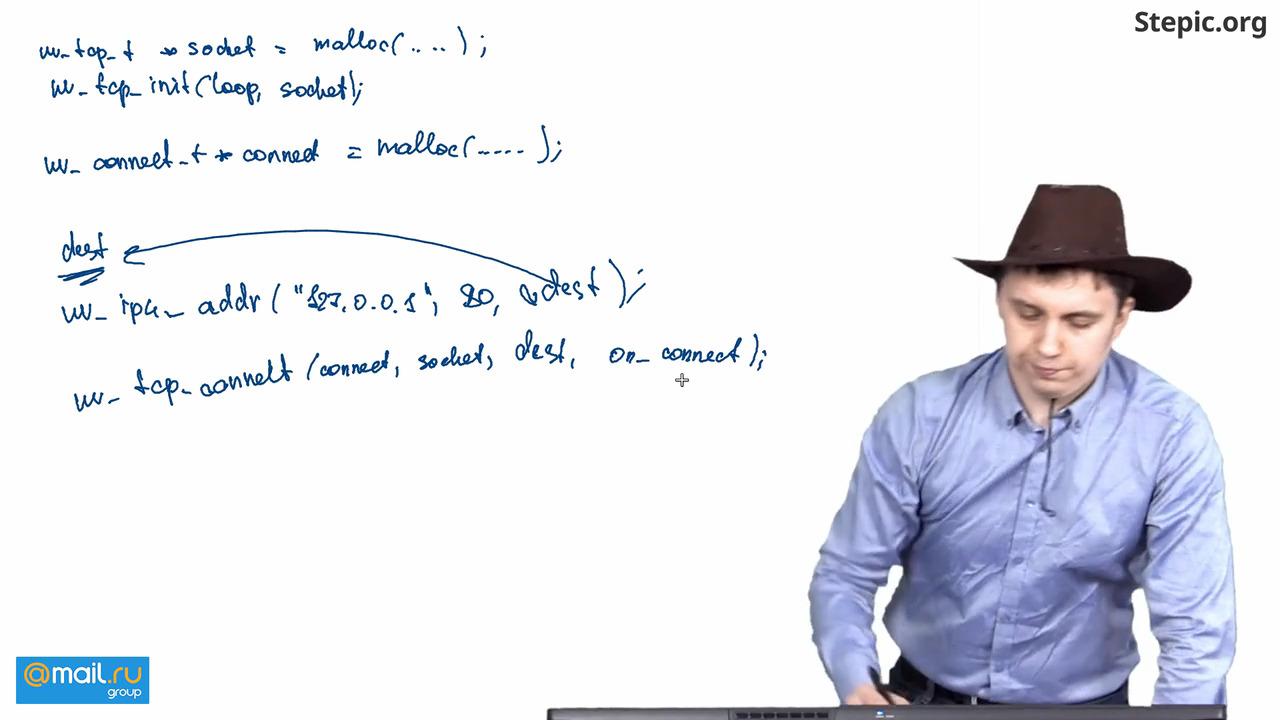 Stepic.org
uv_tcp_t * socket = malloc(....);
uv_tcp_init(loop, socket);
uv_connect_t * connect = malloc(.....);
dest
uv_ip4_addr("127.0.0.1", 80, &dest);
uv_tcp_connect(connect, socket, dest, on_connect);
@mail.ru
group